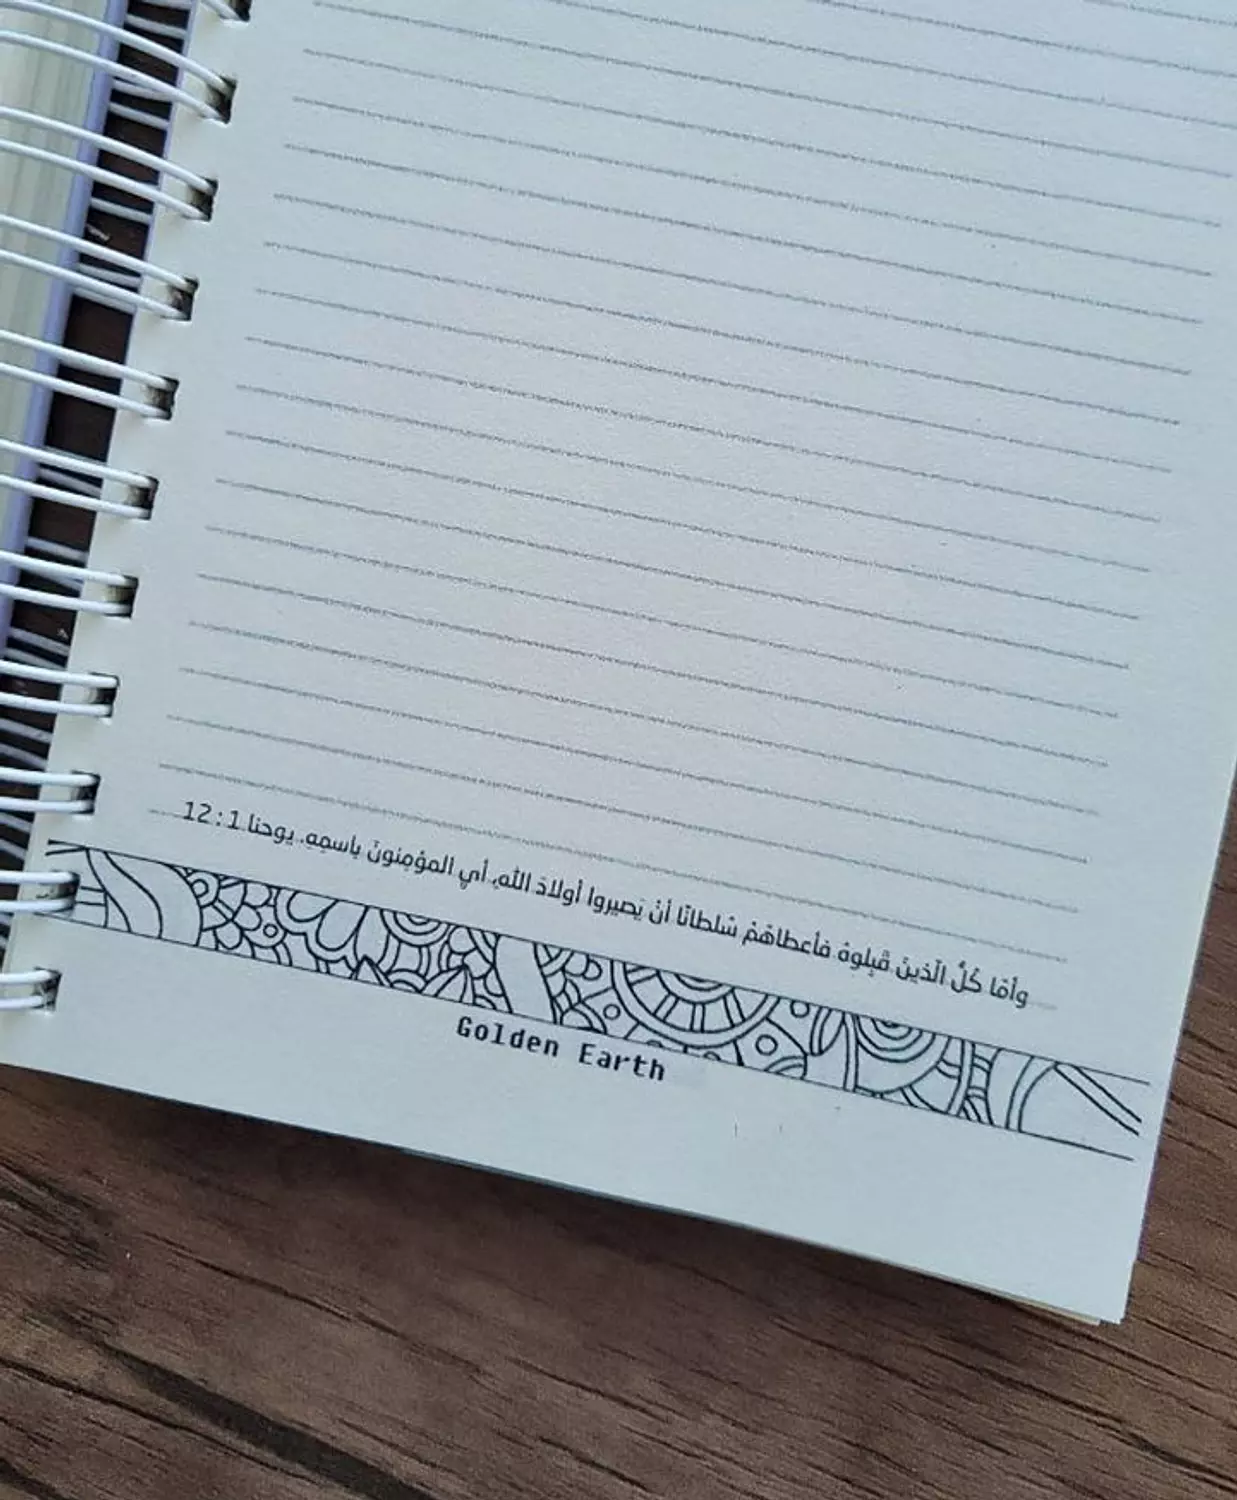 وأمّا كُلُّ الّذينَ قَبِلوهُ فأعطاهُمْ سُلطانًا أنْ يَصيروا أولادَ اللهِ، أي المؤمِنونَ باسمِهِ. يوحنا 1 : 12
Golden Earth